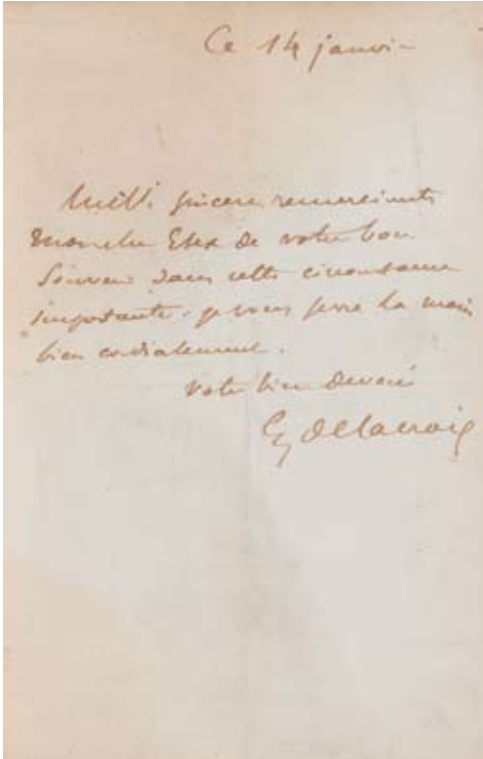 Ce 14 janvier
Mille sincères remerciments
mon cher Etex de votre bon
souvenir dans cette circonstance
importante. je vous serre la main
bien cordialement.
votre bien dévoué
Eg Delacroix